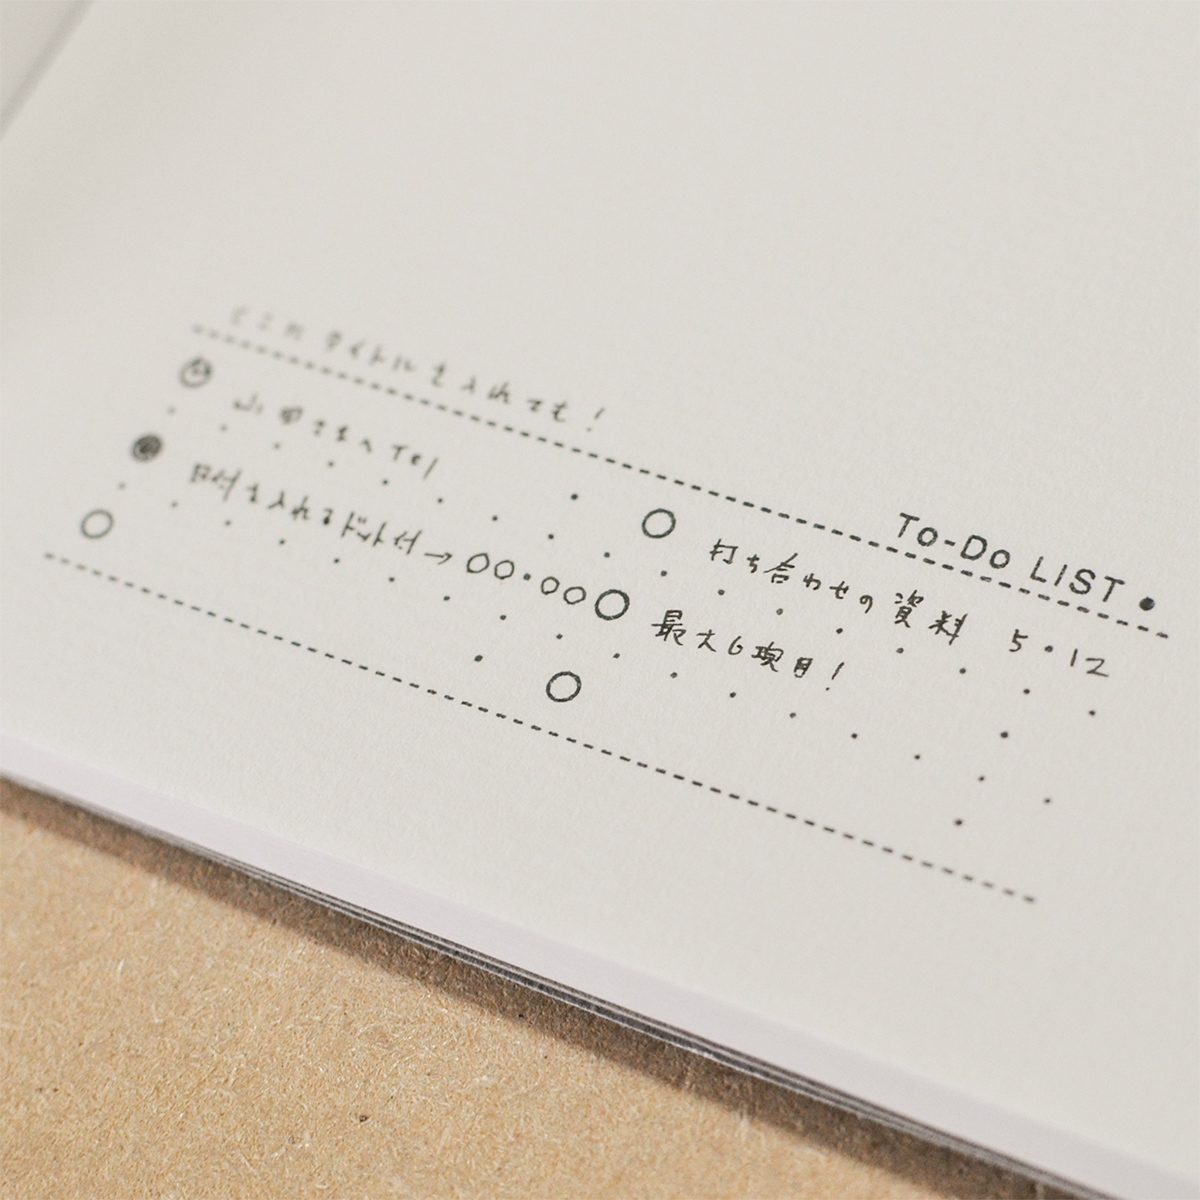 ここにタイトルを入れても!
To-Do LIST
山田さまへTel
打ち合わせの資料 5・12
日付を入れるドット付→〇〇・〇〇
最大6項目!